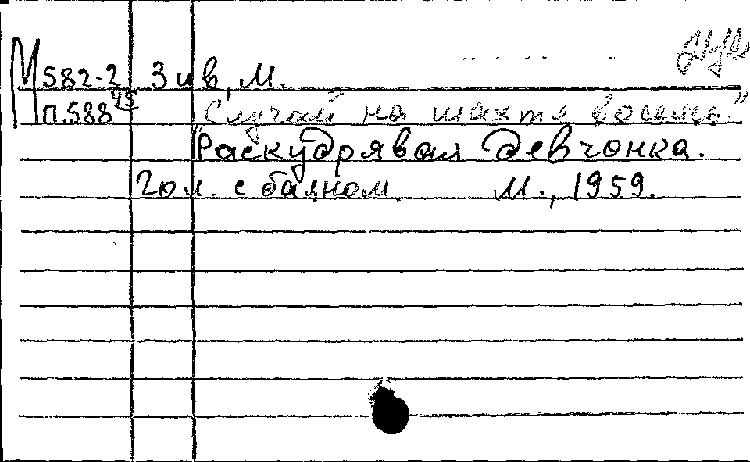 М 582-2 Зив, М.
п.588 "Случай на шахте восемь"
"Раскудрявая девчонка.
Гол. с баяном. М., 1959.